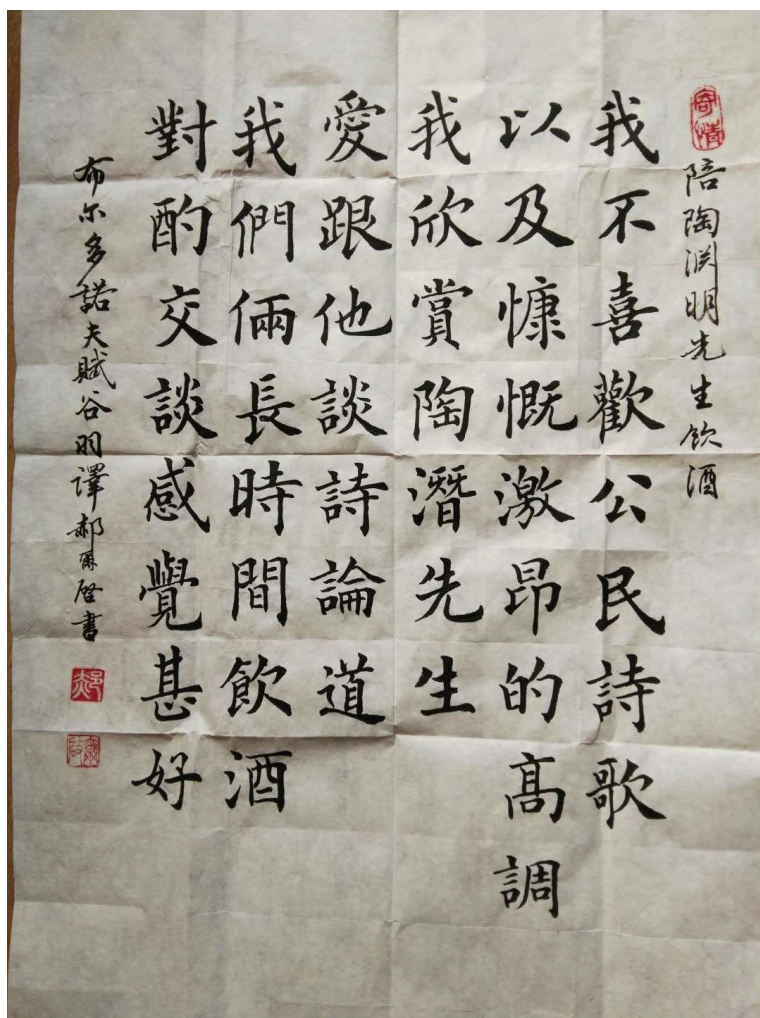 寄情
陪陶渊明先生飲酒
我不喜歡公民詩歌
以及慷慨激昂的高調
我欣賞陶潛先生
愛跟他談詩論道
我們倆長時間飲酒
對酌交談感覺甚好
布尔多諾夫賦谷羽譯郝爾啓書
郝
爾啓